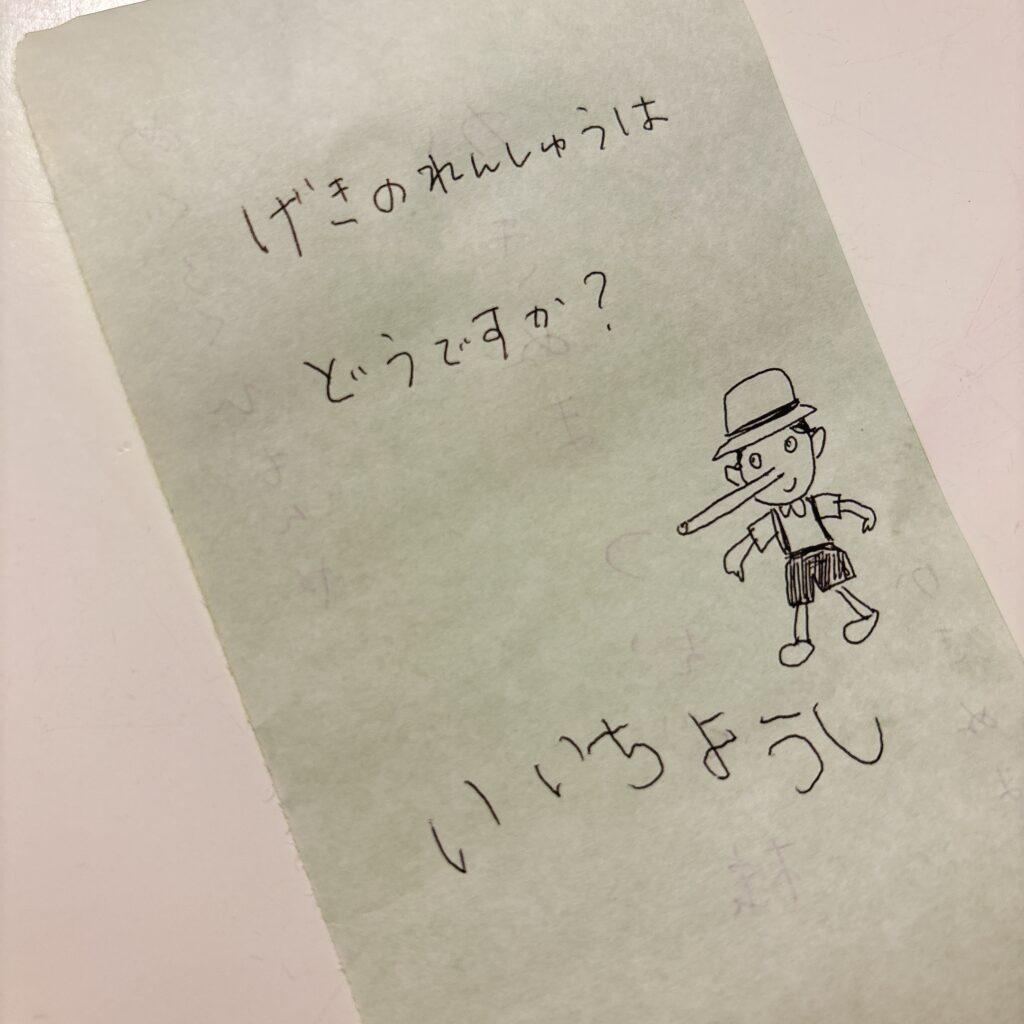 げきのれんしゅうは
どうですか?
いいちようし